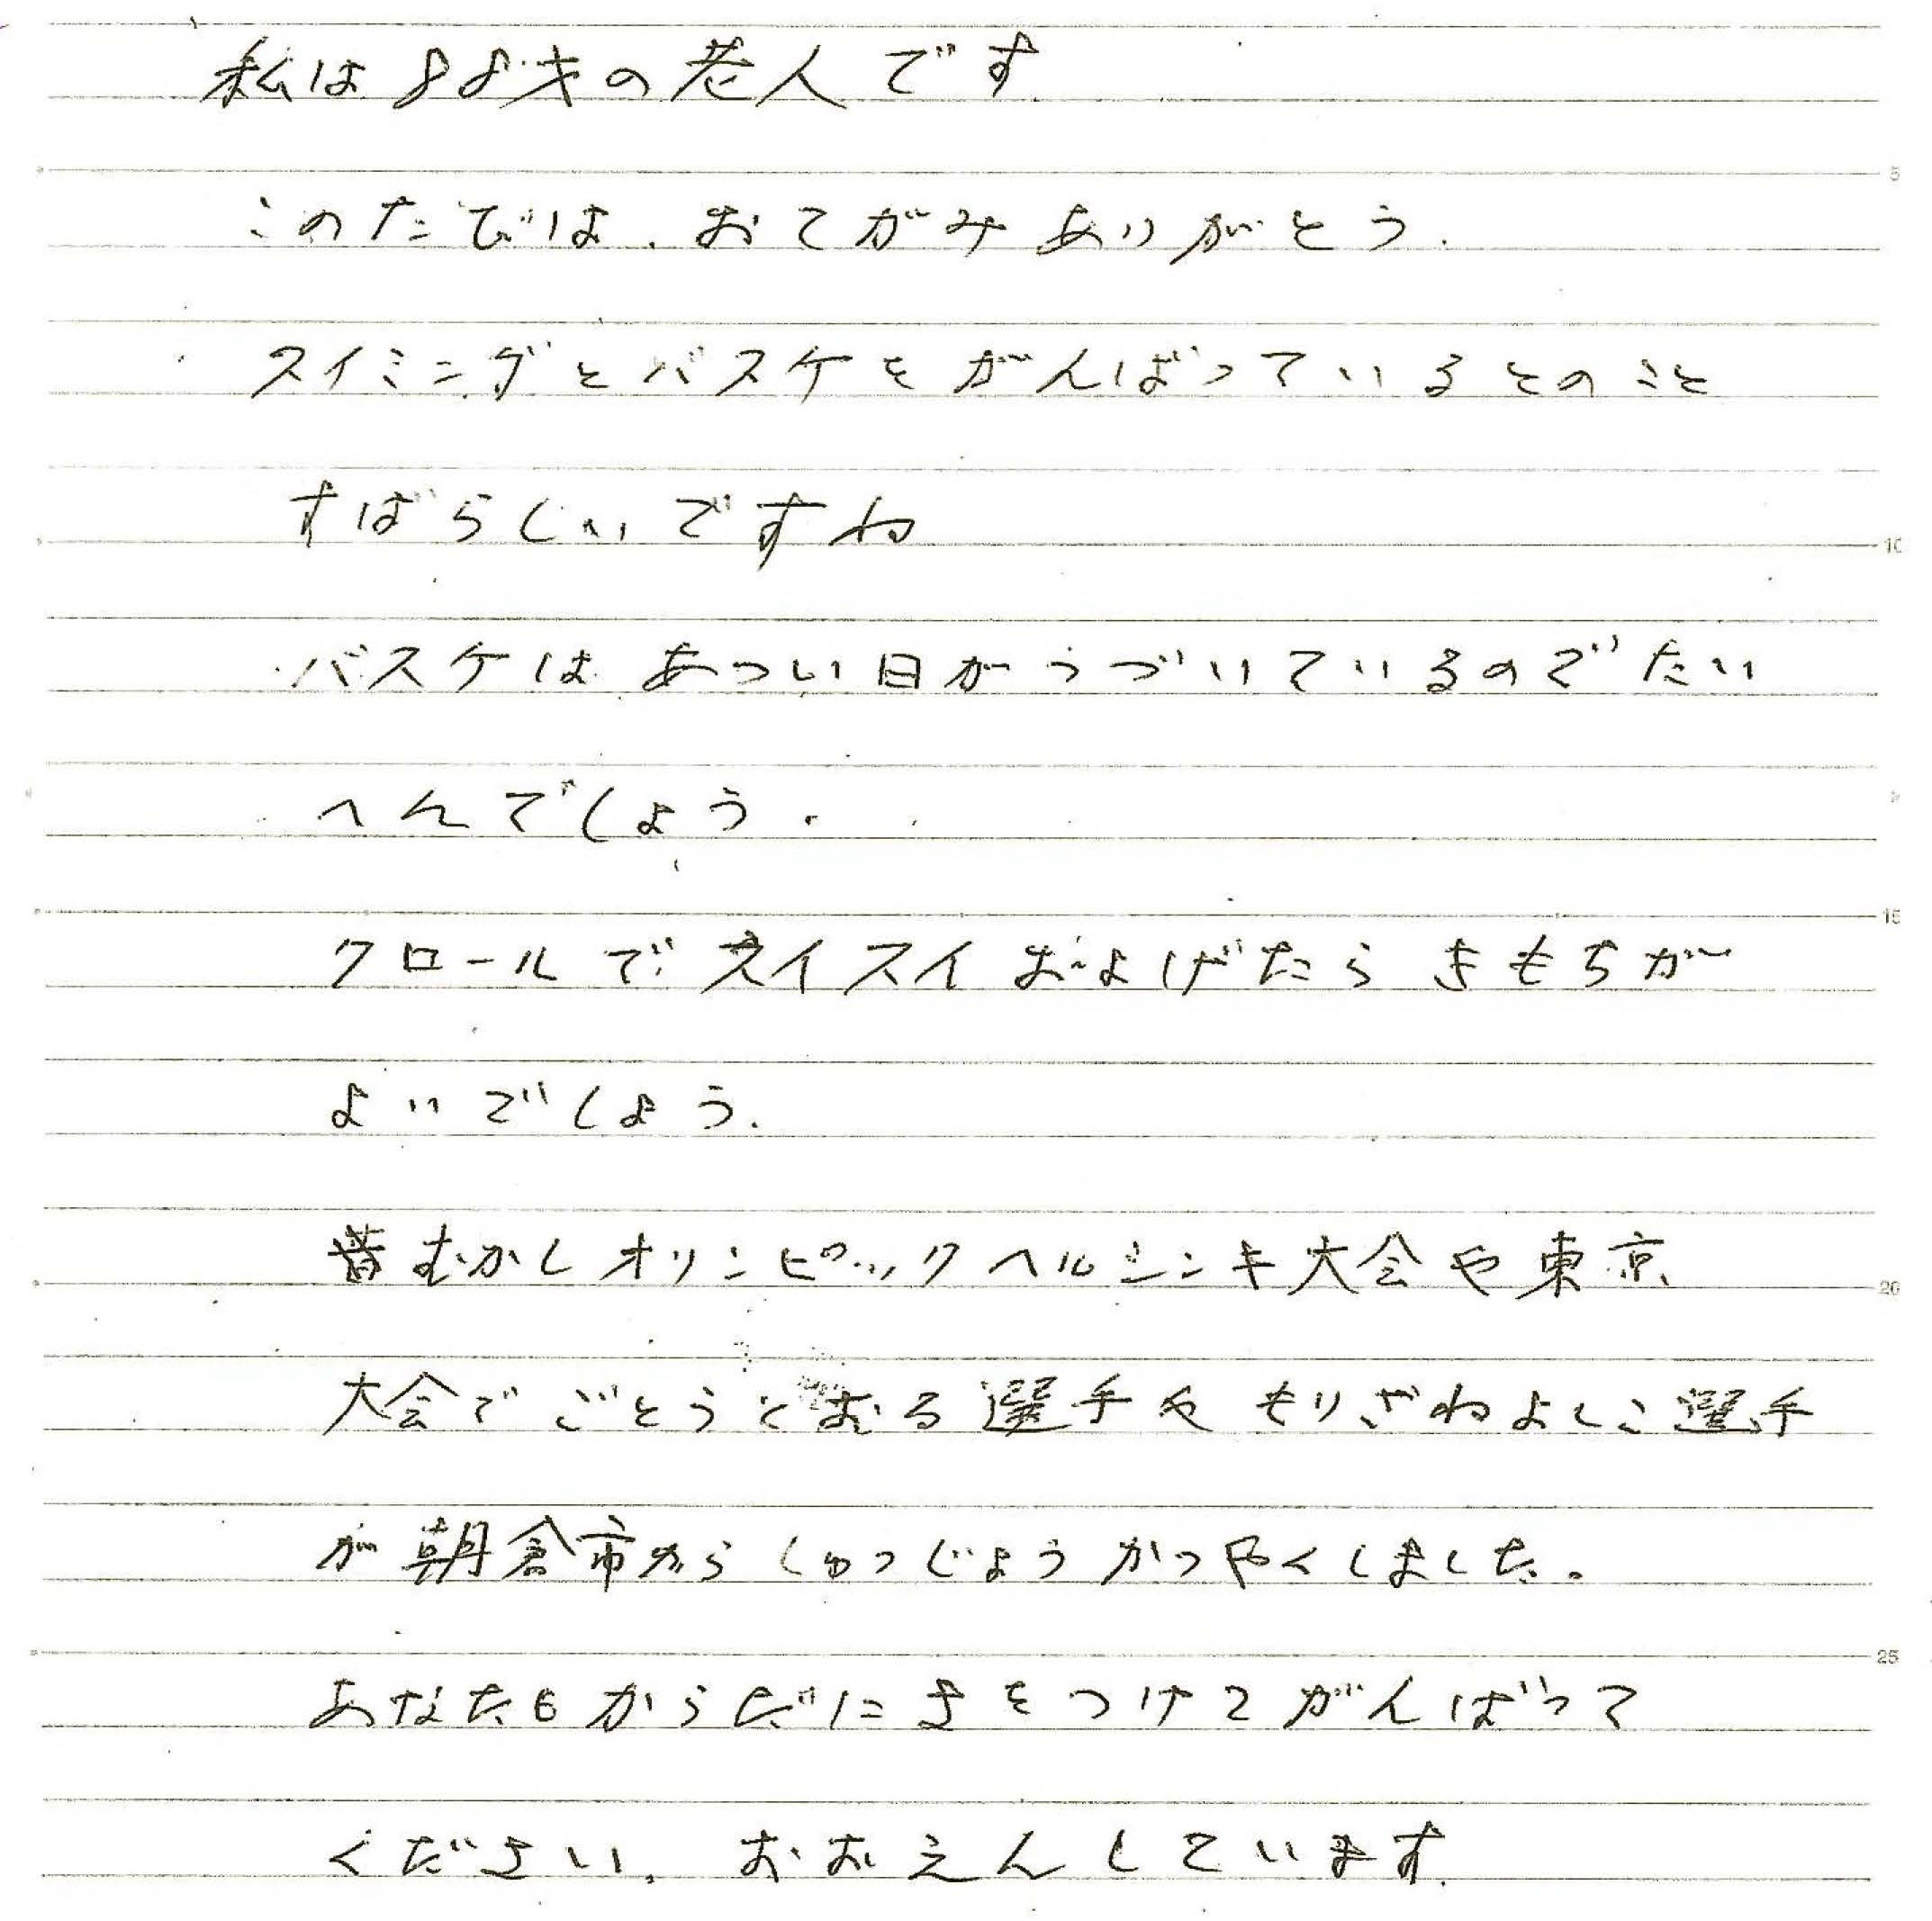 私は88才の老人です
このたびは、おてがみありがとう.
スイミングとバスケをがんばっているとのこと
すばらしいですね
バスケはあつい日がつづいているのでたい
へんでしょう.
クロールでスイスイおよげたらきもちが
よいでしょう.
昔むかしオリンピックヘルシンキ大会や東京
大会でごとうとおる選手やもりざわよしこ選手
が朝倉市からしゅつじょうかつやくしました.
あなたもからだにきをつけてがんばって
ください. おおえんしています.
5
10
15
20
25